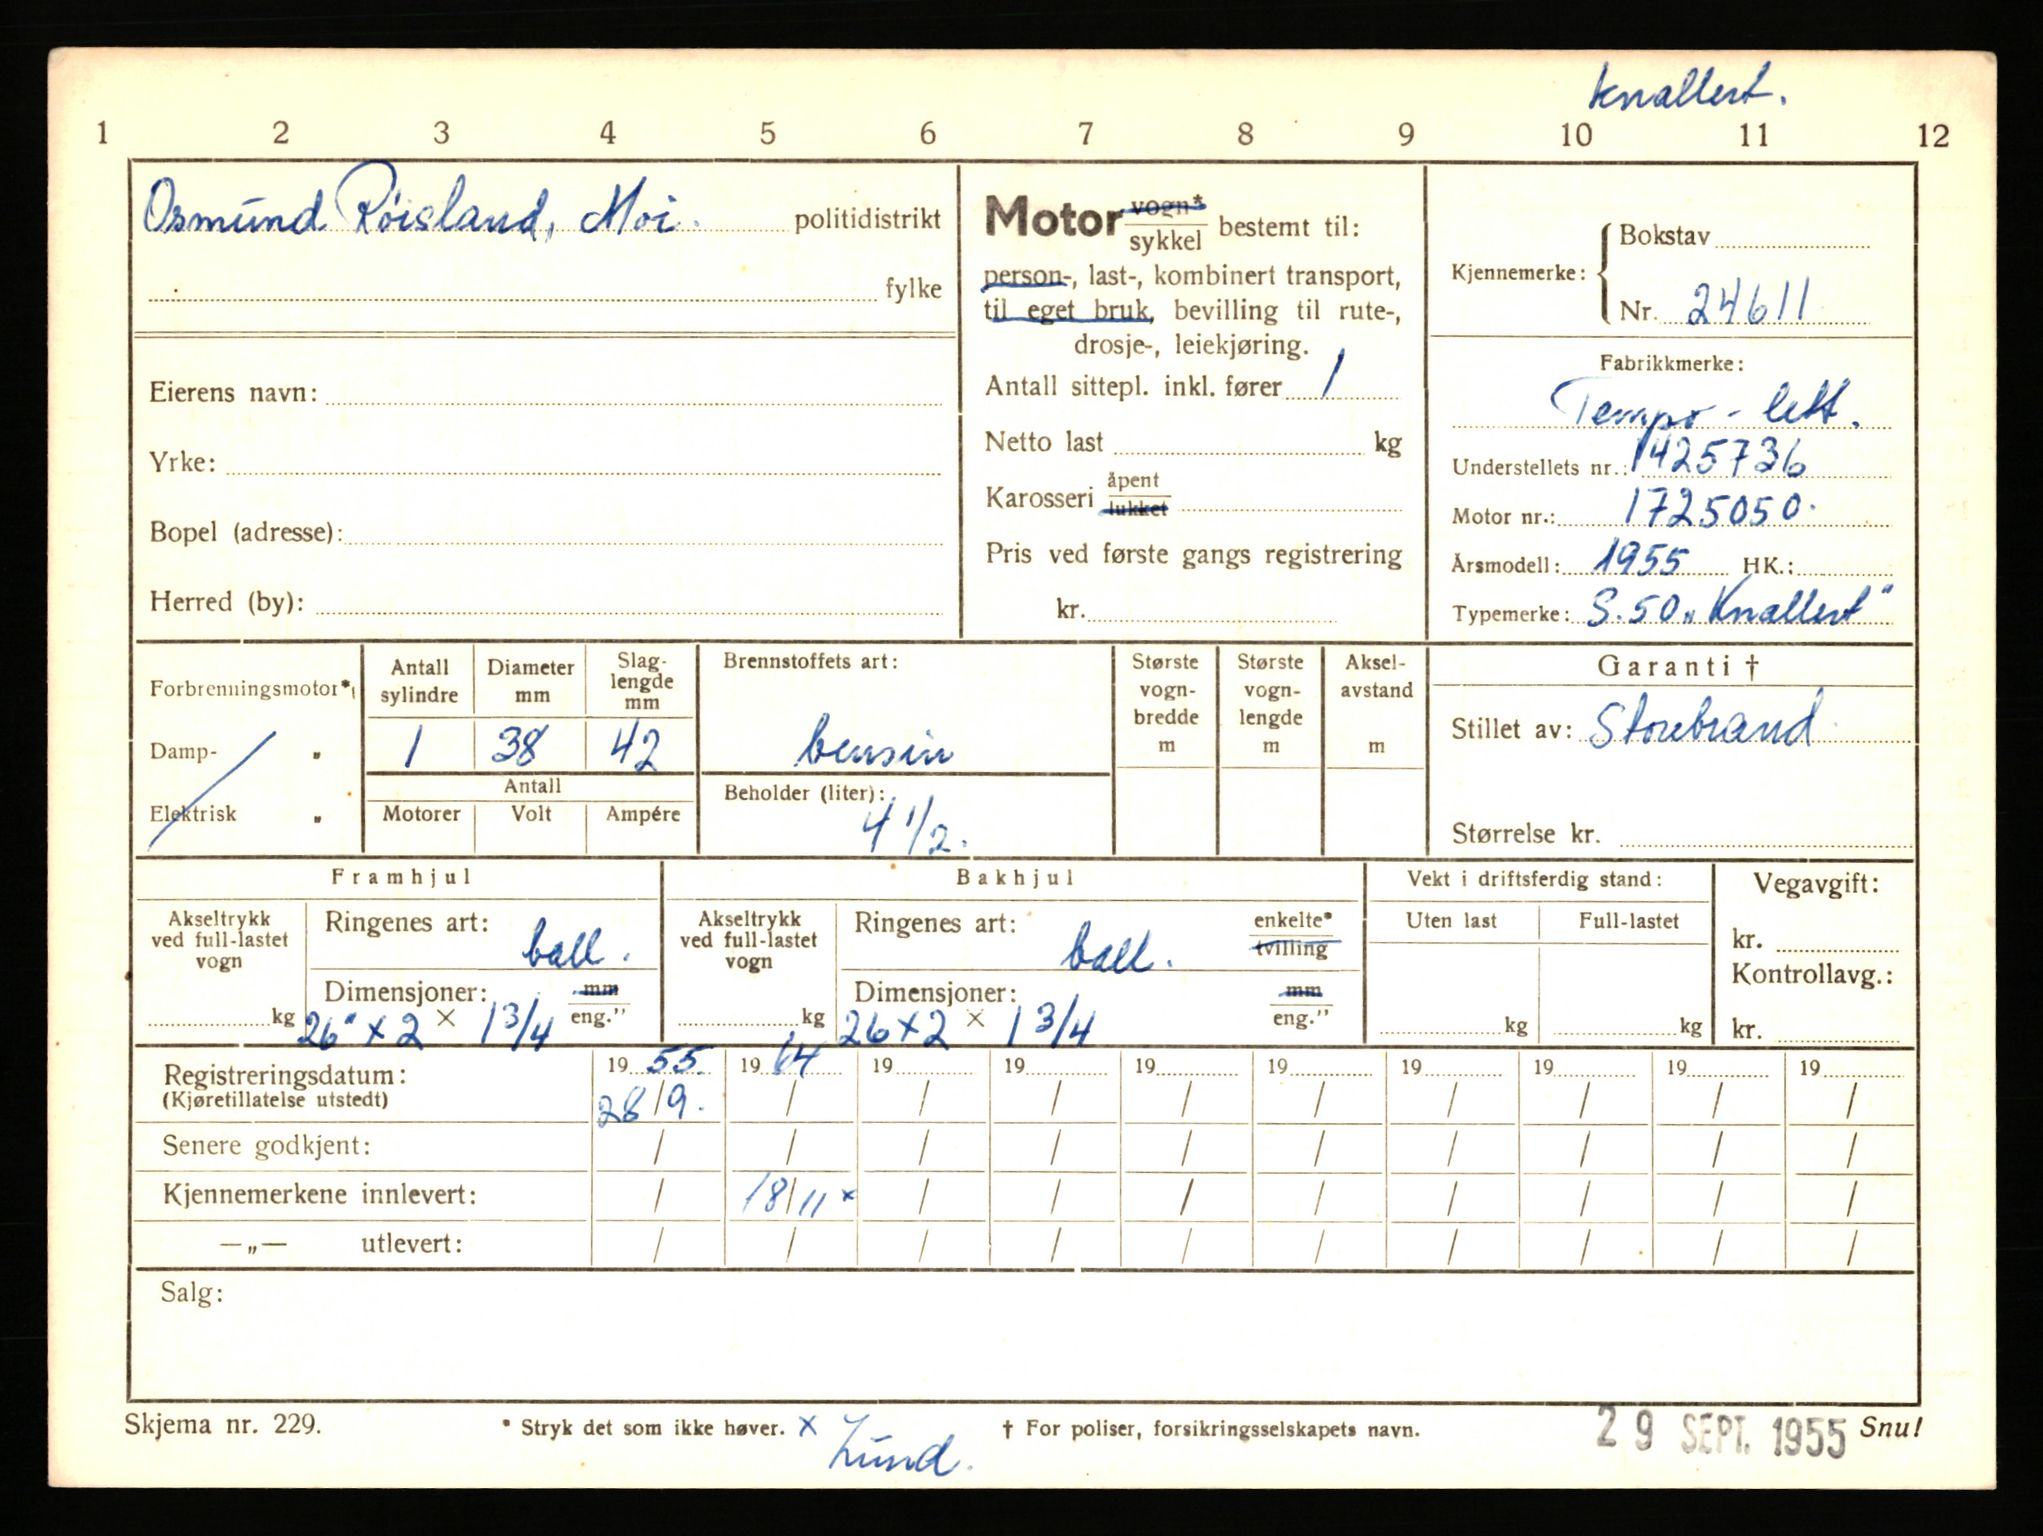 Knallert.
1 2 3 4 5 6 7 8 9 10 11 12
Osmund Röisland, Moi. politidistrikt
fylke
Eierens navn:
Yrke:
Bopel (adresse):
Herred (by):
Motor vogn* / sykkel bestemt til:
person-, last-, kombinert transport,
til eget bruk, bevilling til rute-,
drosje-, leiekjøring.
Antall sittepl. inkl. fører 1
Netto last kg
Karosseri åpent / lukket
Pris ved første gangs registrering
kr.
Kjennemerke: Bokstav
Nr. 24611
Fabrikkmerke:
Tempo - lett.
Understellets nr.: 1425736
Motor nr.: 1725050.
Årsmodell: 1955 HK.:
Typemerke: S.50 „Knallert"
Forbrenningsmotor*)
Damp- „
Elektrisk „
Antall sylindre
1
Diameter mm
38
Slag- lengde mm
42
Antall
Motorer Volt Ampére
Brennstoffets art:
bensin
Beholder (liter):
4 1/2.
Største vogn- bredde m
Største vogn- lengde m
Aksel- avstand m
Garanti †
Stillet av: Storebrand
Størrelse kr.
Framhjul
Akseltrykk ved full-lastet vogn
kg
Ringenes art:
ball.
Dimensjoner: mm / eng."
26" x 2 × 1 3/4
Bakhjul
Akseltrykk ved full-lastet vogn
kg
Ringenes art: enkelte* / tvilling
ball.
Dimensjoner: mm / eng."
26 x 2 × 1 3/4
Vekt i driftsferdig stand:
Uten last Full-lastet
kg kg
Vegavgift:
kr.
Kontrollavg.:
kr.
Registreringsdatum: 19 55. 19 64 19 19 19 19 19 19 19 19
(Kjøretillatelse utstedt) 28/9. / / / / / / / / /
Senere godkjent: / / / / / / / / / /
Kjennemerkene innlevert: / 18/11 x / / / / / / / /
—„— utlevert: / / / / / / / / / /
Salg:
Skjema nr. 229. * Stryk det som ikke høver. x Lund. † For poliser, forsikringsselskapets navn. 29 SEPT. 1955 Snu!